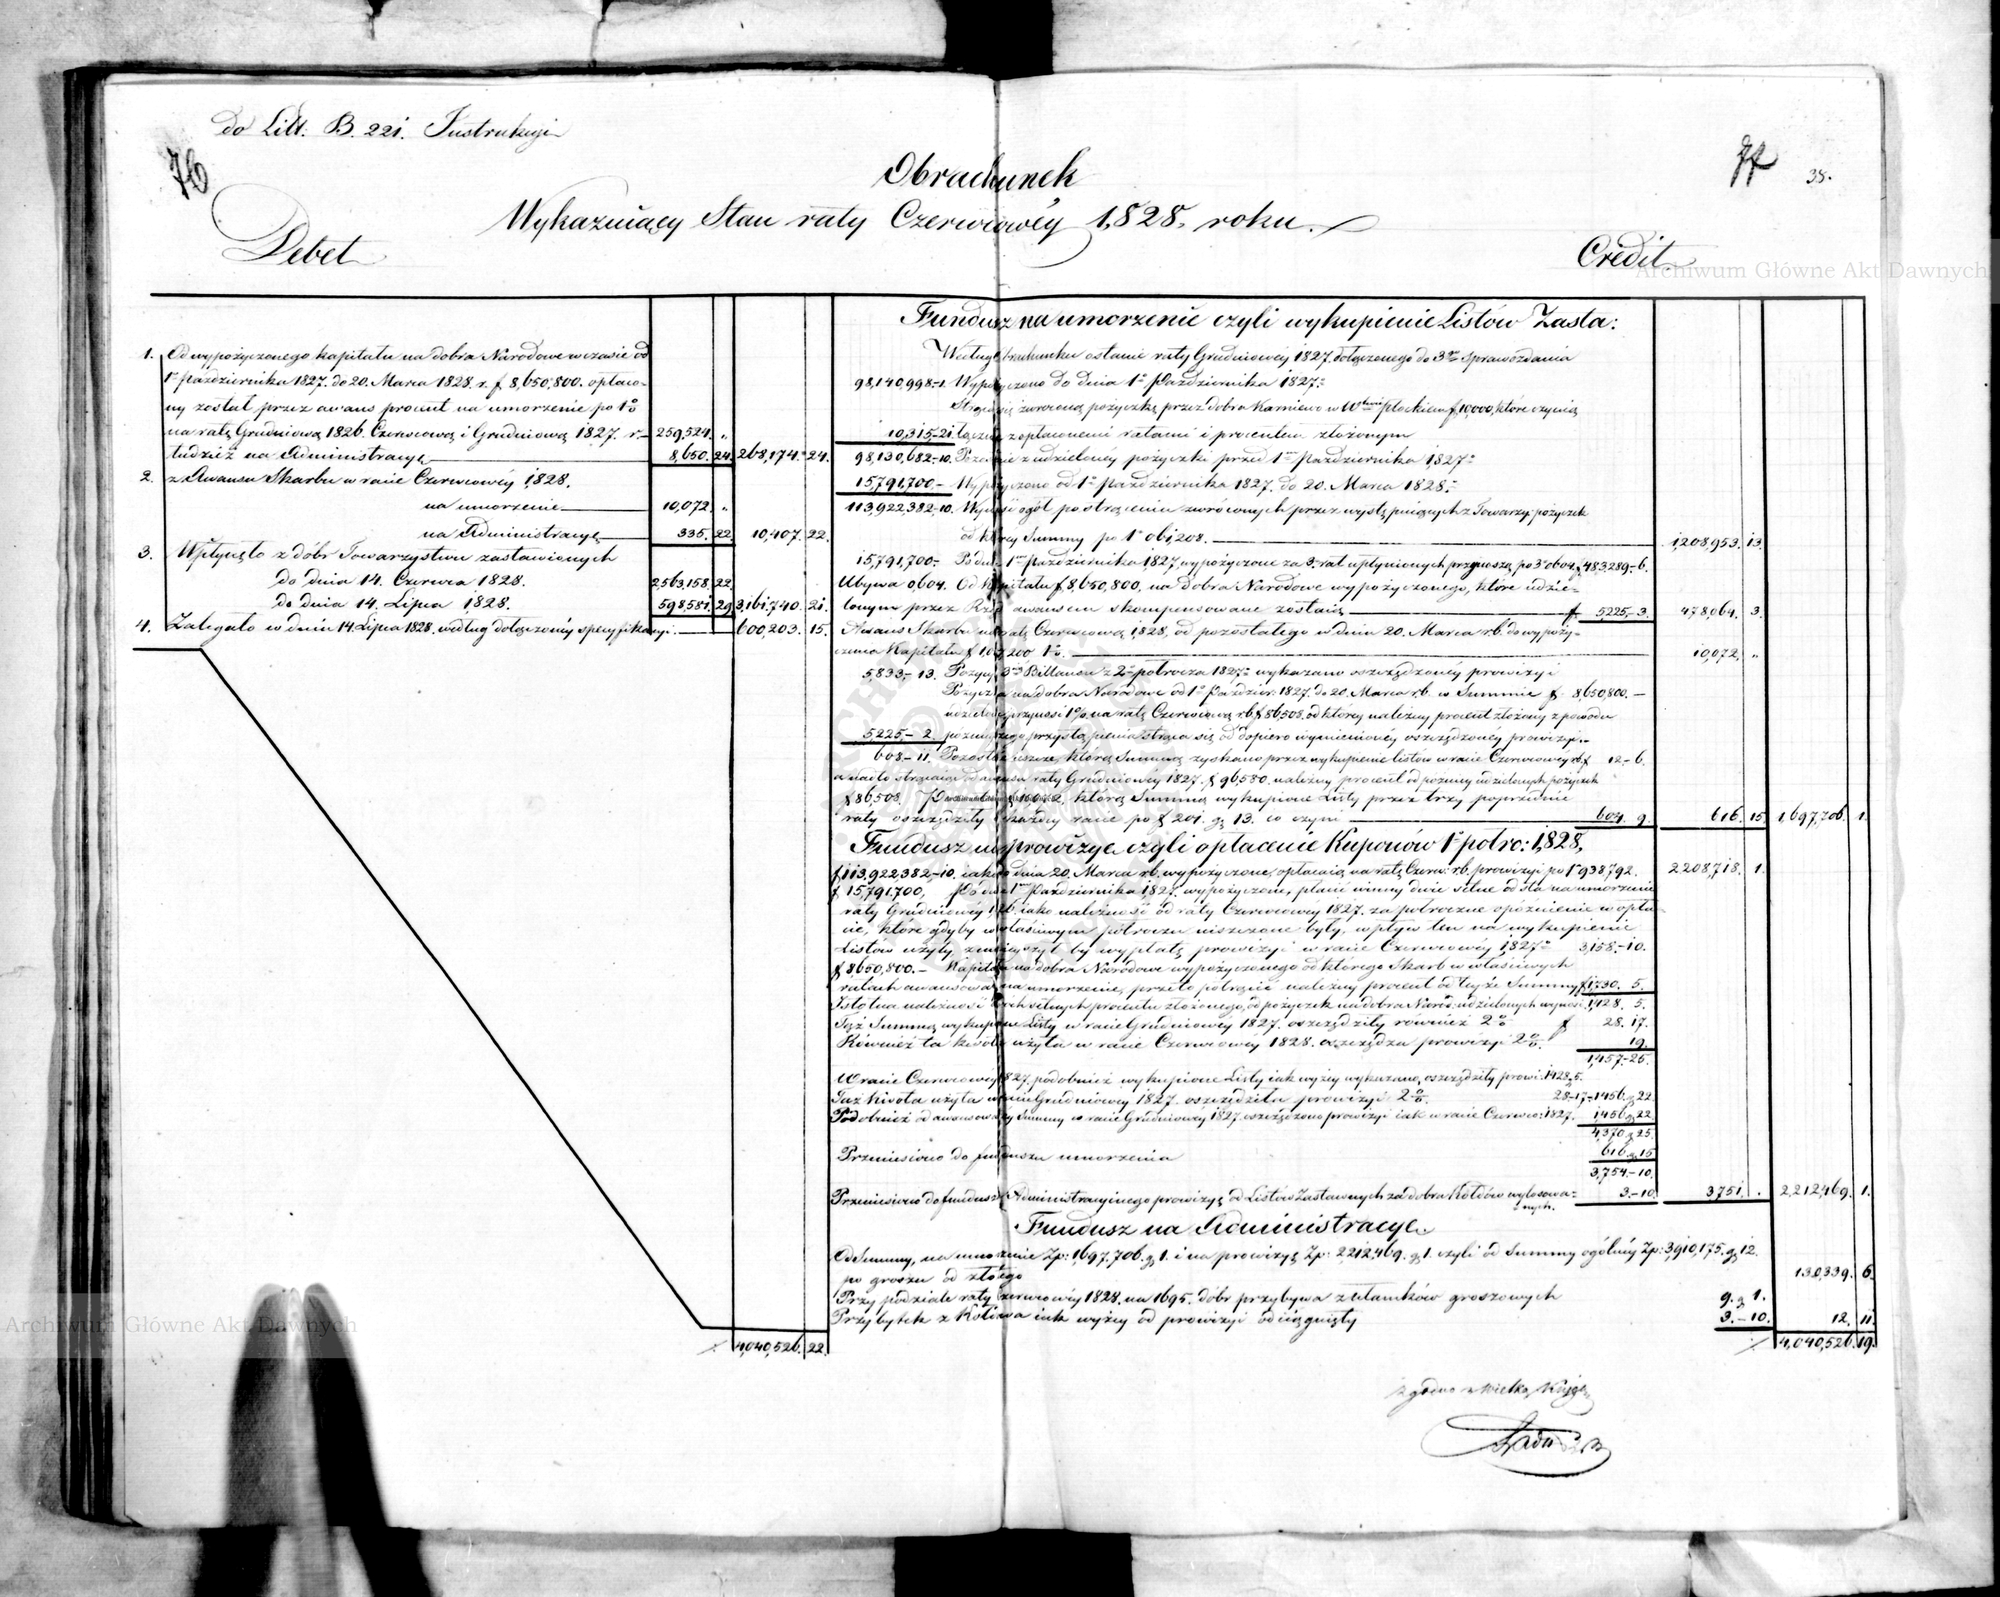 do Litt. B. 221. Instrukcyi
76
77
38.
Obrachunek
Wykazuiący Stan raty Czerwcowéy 1,828. roku.
Debet
Credit
1. Od wypożyczonego kapitału na dobra Narodowe w czasie od
1° Października 1827. do 20. Marca 1828. r. f 8,650,800. opłaco-
ny został przez awans procent na umorzenie po 1%
na ratę Grudniową 1826. Czerwcową i Grudniową 1827. r. 259,524. "
tudzież na Administracyę 8,650. 24. 268,174. 24.
2. z Awansu Skarbu w racie Czerwcowéy 1,828.
na umorzenie 10,072. "
na Administracyę 335. 22. 10,407. 22.
3. Wpłynęło z dóbr Towarzystwu zastawionych
do dnia 14. Czerwca 1828. 2,563,158. 22.
do dnia 14. Lipca 1,828. 598,581. 29. 3,161,740. 21.
4. Zaległo w dniu 14. Lipca 1828. według dołączonéy specyfikacyi. 600,203. 15.
4,040,526. 22.
Fundusz na umorzenie czyli wykupienie Listów Zasta:
Według obrachunku ostanie raty Grudniowéy 1827. dołączonego do 3go Sprawozdania
98,140,998.-1. Wypożyczono do dnia 1° Października 1827.
zwróconą pożyczkę przez dobra Karniewo w Wdztwie Płockiem f 10,000, które czynią
10,315-21. łącznie z opłaconemi ratami i procentem złożonym
98,130,682.-10. Pozostaie z udzielonéy pożyczki przed 1m Października 1,827.
15,791,700.- Wypożyczono od 1° Października 1827. do 20. Marca 1828.
113,922,382.-10. Wynosi ogół po strąceniu zwróconych przez występuiących z Towarzy: pożyczek
od któréy Summy po 1° ob 1,208. 1,208,953. 13.
15,791,700.- Po dniu 1m Października 1827, wypożyczone za 3. rat upłynionych przynoszą po 3° ob 04. f 483,289.-6.
Ubywa 0604. Od Kapitału f 8,650,800, na dobra Narodowe wypożyczonego, które udzie-
lonym przez Rząd awansem skompensowane zostaią f 5225.-3. 478,064. 3.
Awans Skarbu na ratę Czerwcową 1,828, od pozostałego w dniu 20. Marca r.b. do wypoży-
czenia Kapitału 10,072. "
5,833.- 13. Pozycyą Billansu z 2° półrocza 1827. wykazano oszczędzonéy prowizyi
Pożyczka na dobra Narodowe od 1° Paździer: 1827. do 20. Marca r.b. w Summie f 8,650,800.-
udzielona przynosi 1% na ratę Czerwcową r.b. f 86,508. od któréy należny procent złożony z powodu
5,225.- 2. późnieyszego przystąpienia strąca się od dopiero wymienionéy oszczędzonéy prowizyi.
608.- 11. Pozostaie ieszcze, którą Summą zyskano przez wykupienie listów w racie Czerwcowéy r.b. f 12-6.
a nadto strącaiąc od awansu raty Grudniowéy 1827. f 96,580. należny procent od poźniéy udzielonych pożyczek
f 86,508. f 10,072, którą Summą wykupione Listy przez trzy poprzednie
raty oszczędziły w każdéy racie po f 201. g. 13. co czyni 604. 9. 616. 15. 1,697,706. 1.
Fundusz na prowizye czyli opłacenie Kuponów 1° półro: 1,828,
f 113,922,382-10. iako do dnia 20. Marca r.b. wypożyczone, opłacaią na ratę Czerw: r.b. prowizyi po 1° 938,792. 2,208,718. 1.
f 15,791,700. Po dniu 1m Października 1827. wypożyczone, płacić winny dwie setne od sta na umorzenie
raty Grudniowéy 1826. iako należność od raty Czerwcowéy 1827. za półroczne opóźnienie w opła-
cie, które gdyby w właściwym półroczu uiszczone były, wpływ ten na wykupienie
Listów użyty zmnieyszył by wypłatę prowizyi w racie Czerwcowéy 1,827. 3,158.-10.
f 8,650,800.- Kapitału na dobra Narodowe wypożyczonego od którego Skarb w właściwych
ratach awansował na umorzenie, przeto potrącić należny procent od teyże Summy f 1,730. 5.
Istotna należność dwóch setnych procentu złożonego, od pożyczek na dobra Narod: udzielonych wynosi 1,428. 5.
Tąż Summą wykupione Listy w racie Grudniowéy 1827. oszczędziły również 2% f 28. 17.
Również ta kwota użyta w racie Czerwcowéy 1828. oszczędza prowizyi 2%. 19.
1,457.-25.
W racie Czerwcowéy 1827. podobnież wykupione Listy iak wyżéy wykazano, oszczędziły prowi: 1428.5.
Taż kwota użyta w racie Grudniowéy 1827. oszczędziła prowizyi 2%. 28.-17.-1456. g. 22.
Podobnież od awansowanéy Summy w racie Grudniowéy 1827. oszczędzono prowizyi iak w racie Czerwco: 1827. 1456. g. 22.
4,370 g. 25.
Przeniesiono do funduszu umorzenia 616. g. 15.
3,754.-10.
Przeniesiono do funduszu Administracyinego prowizyę od Listów Zastawnych za dobra Kotłów wylosowa- 3.-10. 3,751. . 2,212,469. 1.
nych.
Fundusz na Administracye.
Od Summy, na umorzenie Zp: 1,697,706. g. 1. i na prowizyę Zp: 2,212,469. g. 1. czyli od Summy ogólnéy Zp: 3,910,175. g. 12.
po groszu od złotego 130,339. 6.
Przy podziale raty Czerwcowéy 1828. na 1695. dóbr przybywa z ułamków groszowych 9. g. 1.
Przybytek z Kotłowa iak wyżéy od prowizyi odciągnięty 3.-10. 12. 11.
4,040,526. 19.
Zgodno z Wielką Księgą